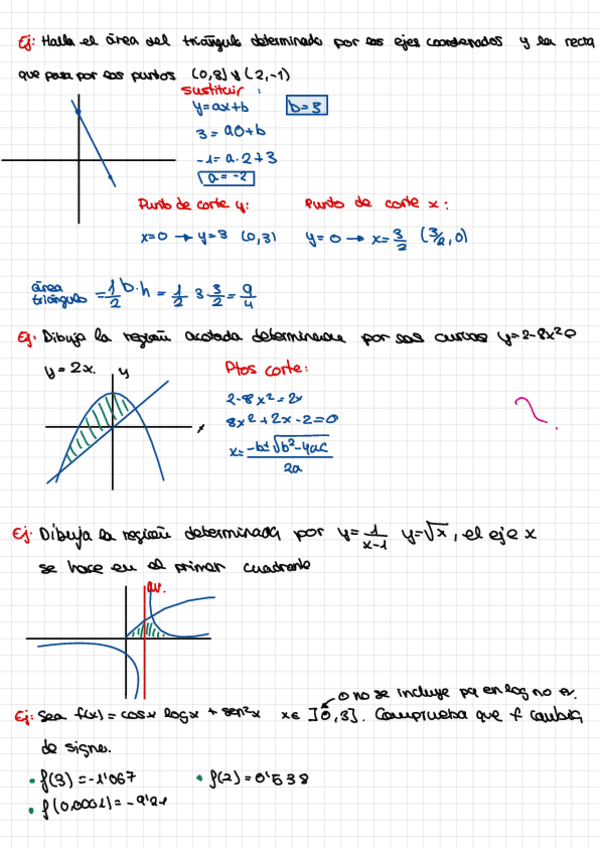 Ej: Halla el área del triángulo determinado por los ejes coordenados y la recta
que pasa por los puntos (0,3) y (2,-1)
sustituir:
y=ax+b b=3
3=a0+b
-1=a·2+3
a=-2
Punto de corte y: Punto de corte x:
x=0 → y=3 (0,3) y=0 → x=3/2 (3/2,0)
área triángulo = 1/2 b·h = 1/2 3·3/2 = 9/4
Ej. Dibuja la región acotada determinada por las curvas y=2-8x²
y=2x. y
Ptos corte:
2-8x²=2x
8x²+2x-2=0
x
x= -b±√b²-4ac / 2a
Ej. Dibuja la región determinada por y=1/x-1 y=√x, el eje x
se hace en el primer cuadrante
av.
0 no se incluye pq en log no
Ej: Sea f(x)=cosx logx + sen²x x∈ ]0,3]. Comprueba que f cambia
de signo.
• f(3)=-1'067 • f(2)=0'538
• f(0.0001)=-9'21